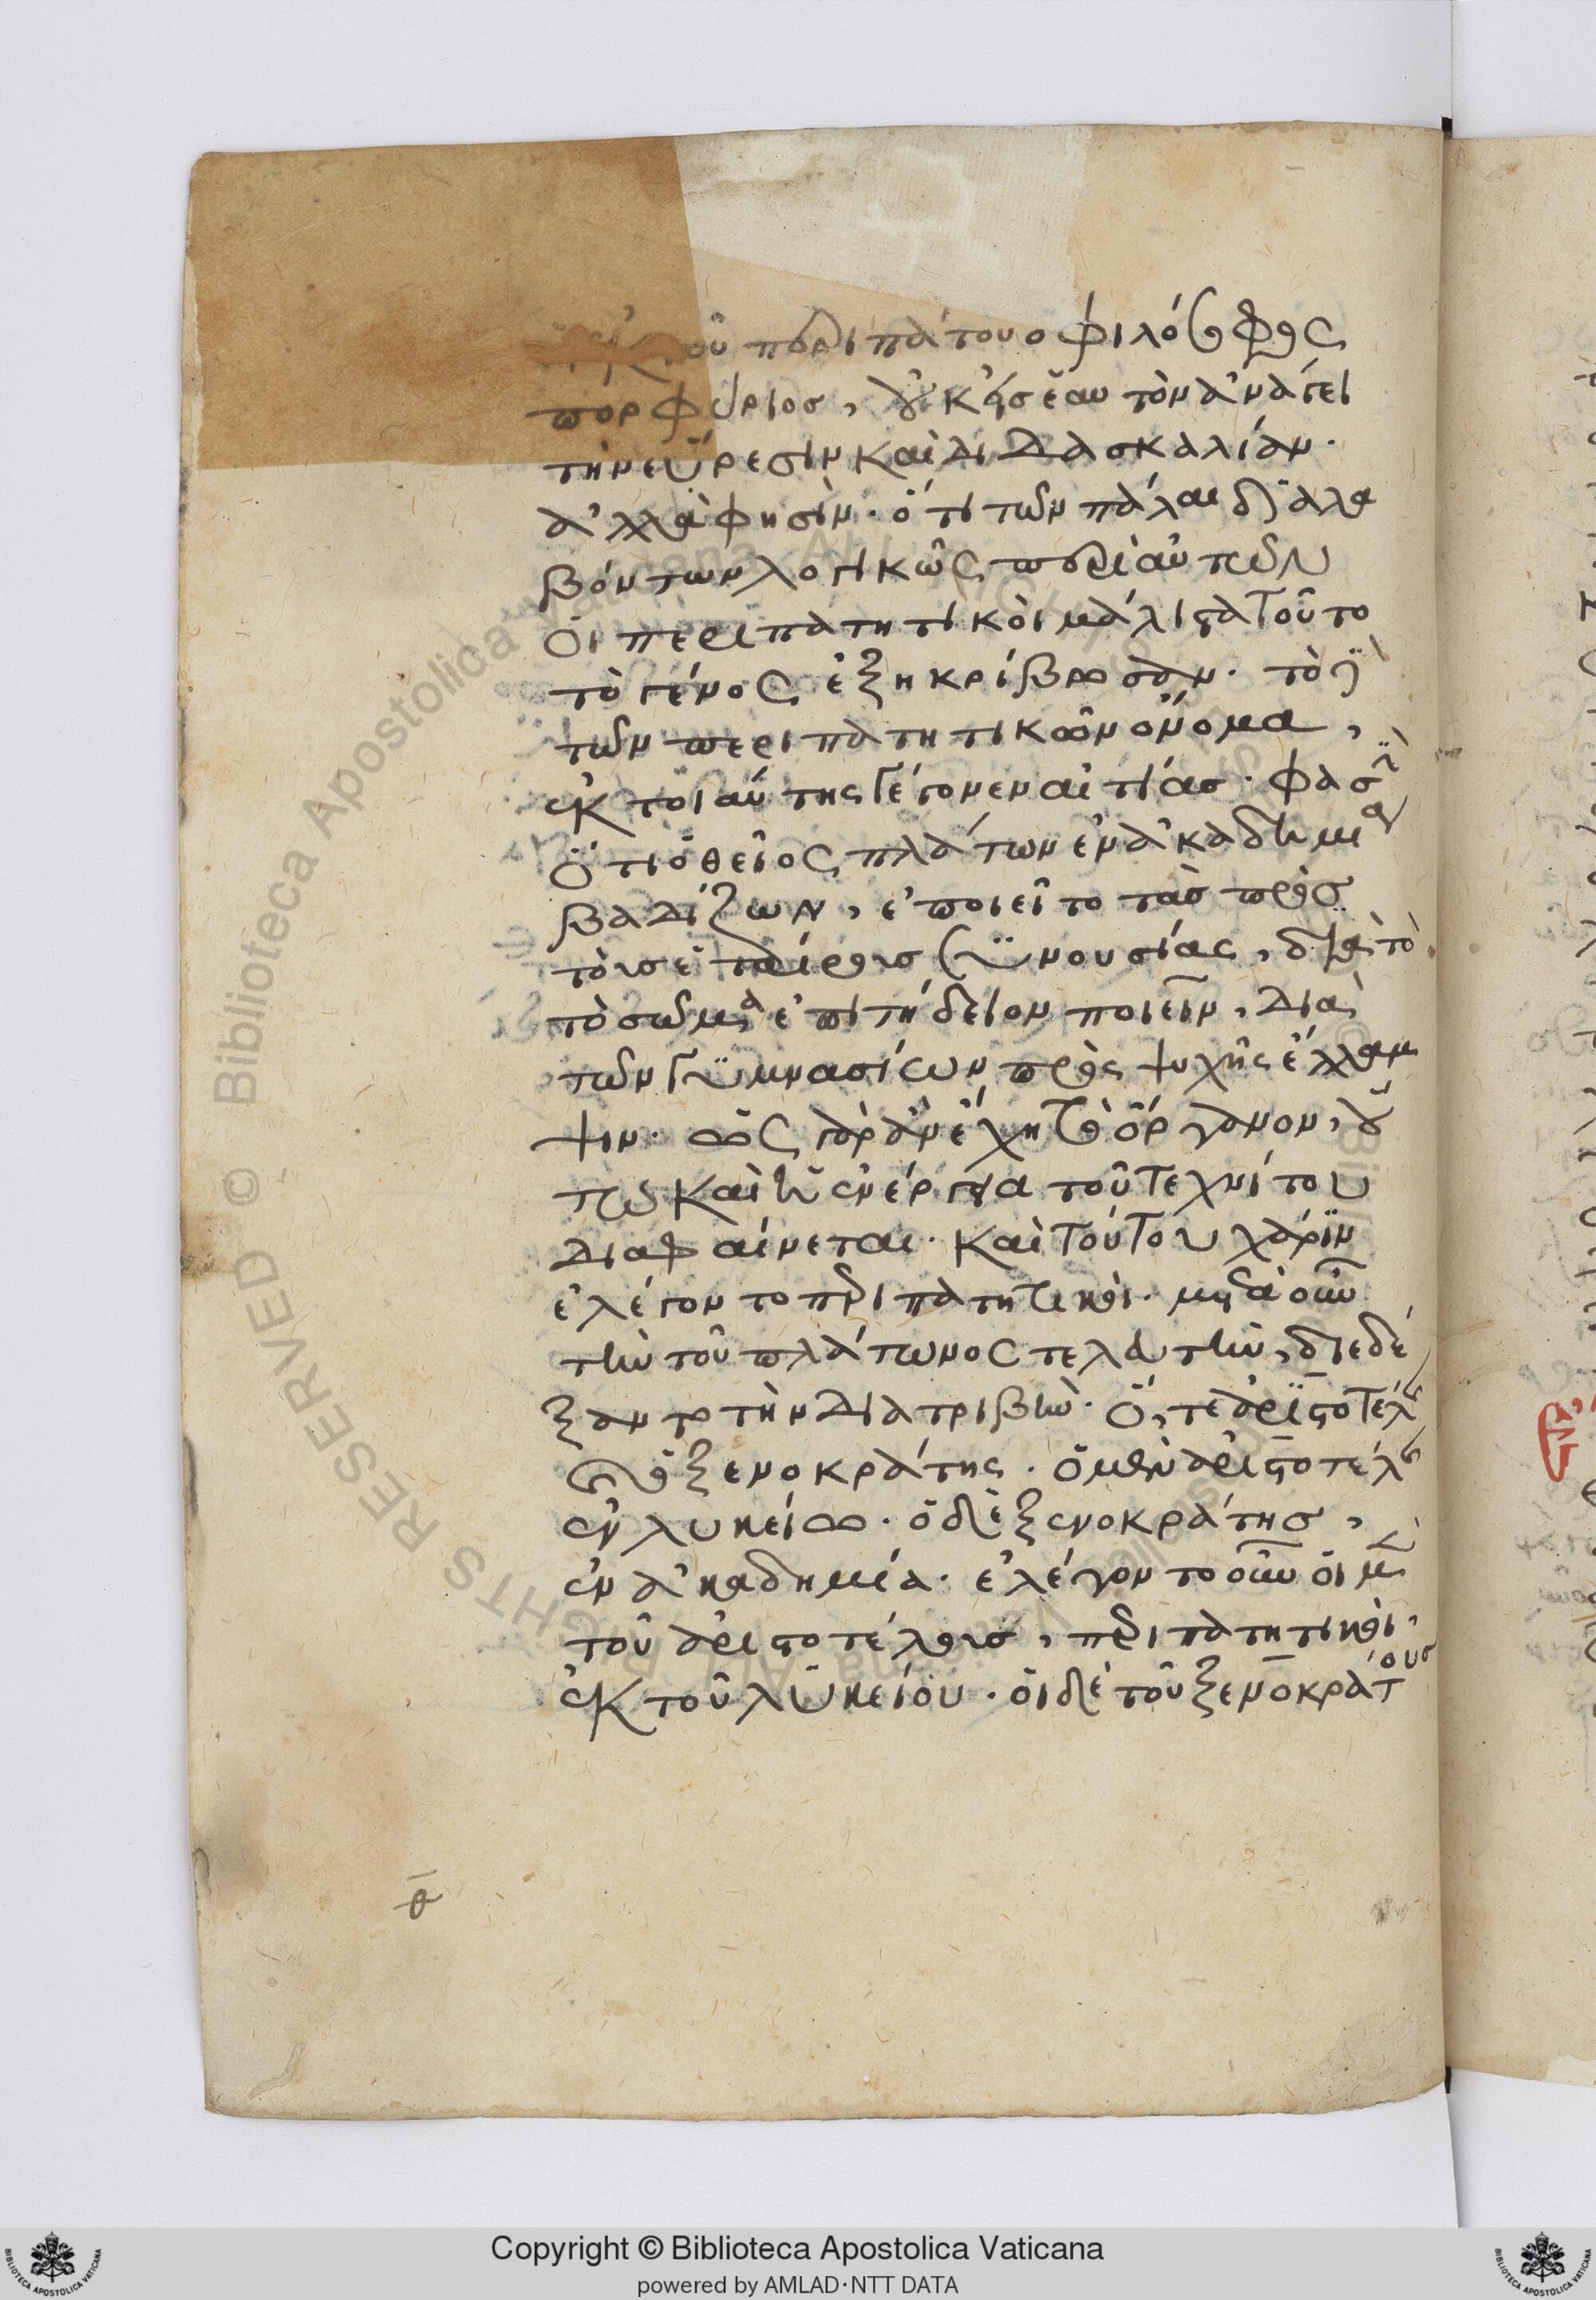 τοῦ περιπάτου ὁ φιλόσοφος
πορφύριος, οὐκ εἰς ἑαυτὸν ἀνάγει
τὴν εὕρεσιν καὶ διδασκαλίαν.
ἀλλὰ φησὶν. ὅτι τῶν πάλαι διαλα
βόντων λογικῶς περὶ αὐτῶν
Οἱ περιπατητικοὶ μάλιστα τοῦτο
τὸ γένος ἐξηκρίβωσαν. τὸ δὲ
τῶν περιπατητικῶν ὄνομα,
ἐκ τοιαύτης γέγονεν αἰτίας. φασὶ
Ὅτι ὁ θεῖος πλάτων ἐν ἀκαδημία
βαδίζων, ἐποιεῖτο τὰς πρὸς
τοὺς ἑταίρους συνουσίας, διὰ τὸ
τὸ σῶμα ἐπιτήδειον ποιεῖν, διὰ
τῶν γυμνασίων πρὸς ψυχῆς ἔλλαμ
ψιν. ὡς γὰρ ἂν ἔχη τὸ ὄργανον, οὕ
τω καὶ ἡ ἐνέργεια τοῦ τεχνίτου
διαφαίνεται. καὶ τούτου χάριν
ἐλέγοντο περιπατητικοί. μετὰ οὖν
τὴν τοῦ πλάτωνος τελευτὴν, διεδέ
ξαντο τὴν διατριβὴν. Ὅ, τε ἀριστοτέλης
καὶ ὁ ξενοκράτης. ὁ μὲν ἀριστοτέλης
ἐν λυκείω. ὁ δὲ ξενοκράτης,
ἐν ἀκαδημία. ἐλέγοντο οὖν οἱ μὲν
τοῦ ἀριστοτέλους, περιπατητικοὶ,
ἐκ τοῦ λυκείου. οἱ δὲ τοῦ ξενοκράτους
θ
Copyright © Biblioteca Apostolica Vaticana
powered by AMLAD·NTT DATA